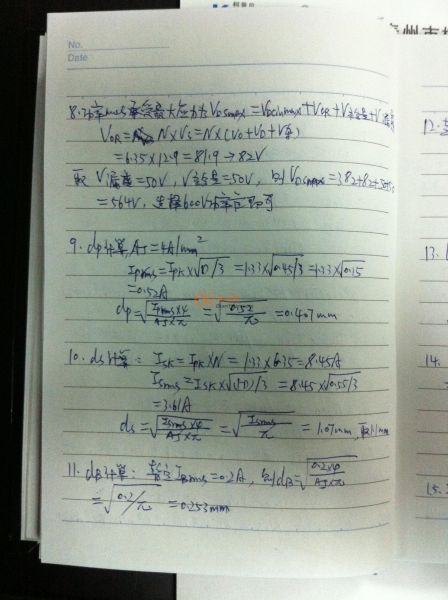 No.
Date
8. 功率mos承受最大应力为 VDSmax = VDCinmax + VOR + V
VOR = N×VS = N×(VO+VD+V
= 6.35×12.9 = 81.9 → 82V
取 V = 50V, V = 50V, 则 VDSmax = 382+82+50+50
= 564V, 选择600V功率管即可
9. dp计算, AJ=4A/mm²
Iprms = Ipk×√D/3 = 1.33×√0.45/3 = 1.33×√0.15
= 0.52A
dp = √Iprms×4/AJ×π = √0.52/π = 0.407mm
10. ds计算: Isk = Ipk×N = 1.33×6.35 = 8.45A
Isrms = Isk×√(1-D)/3 = 8.45×√0.55/3
= 3.61A
ds = √Isrms×4/AJ×π = √Isrms/π = 1.07mm, 取1.1mm
11. dB计算: IBrms = 0.2A, 则dB = √0.2×4/AJ×π
= √0.2/π = 0.253mm
12.
13.
14.
15.